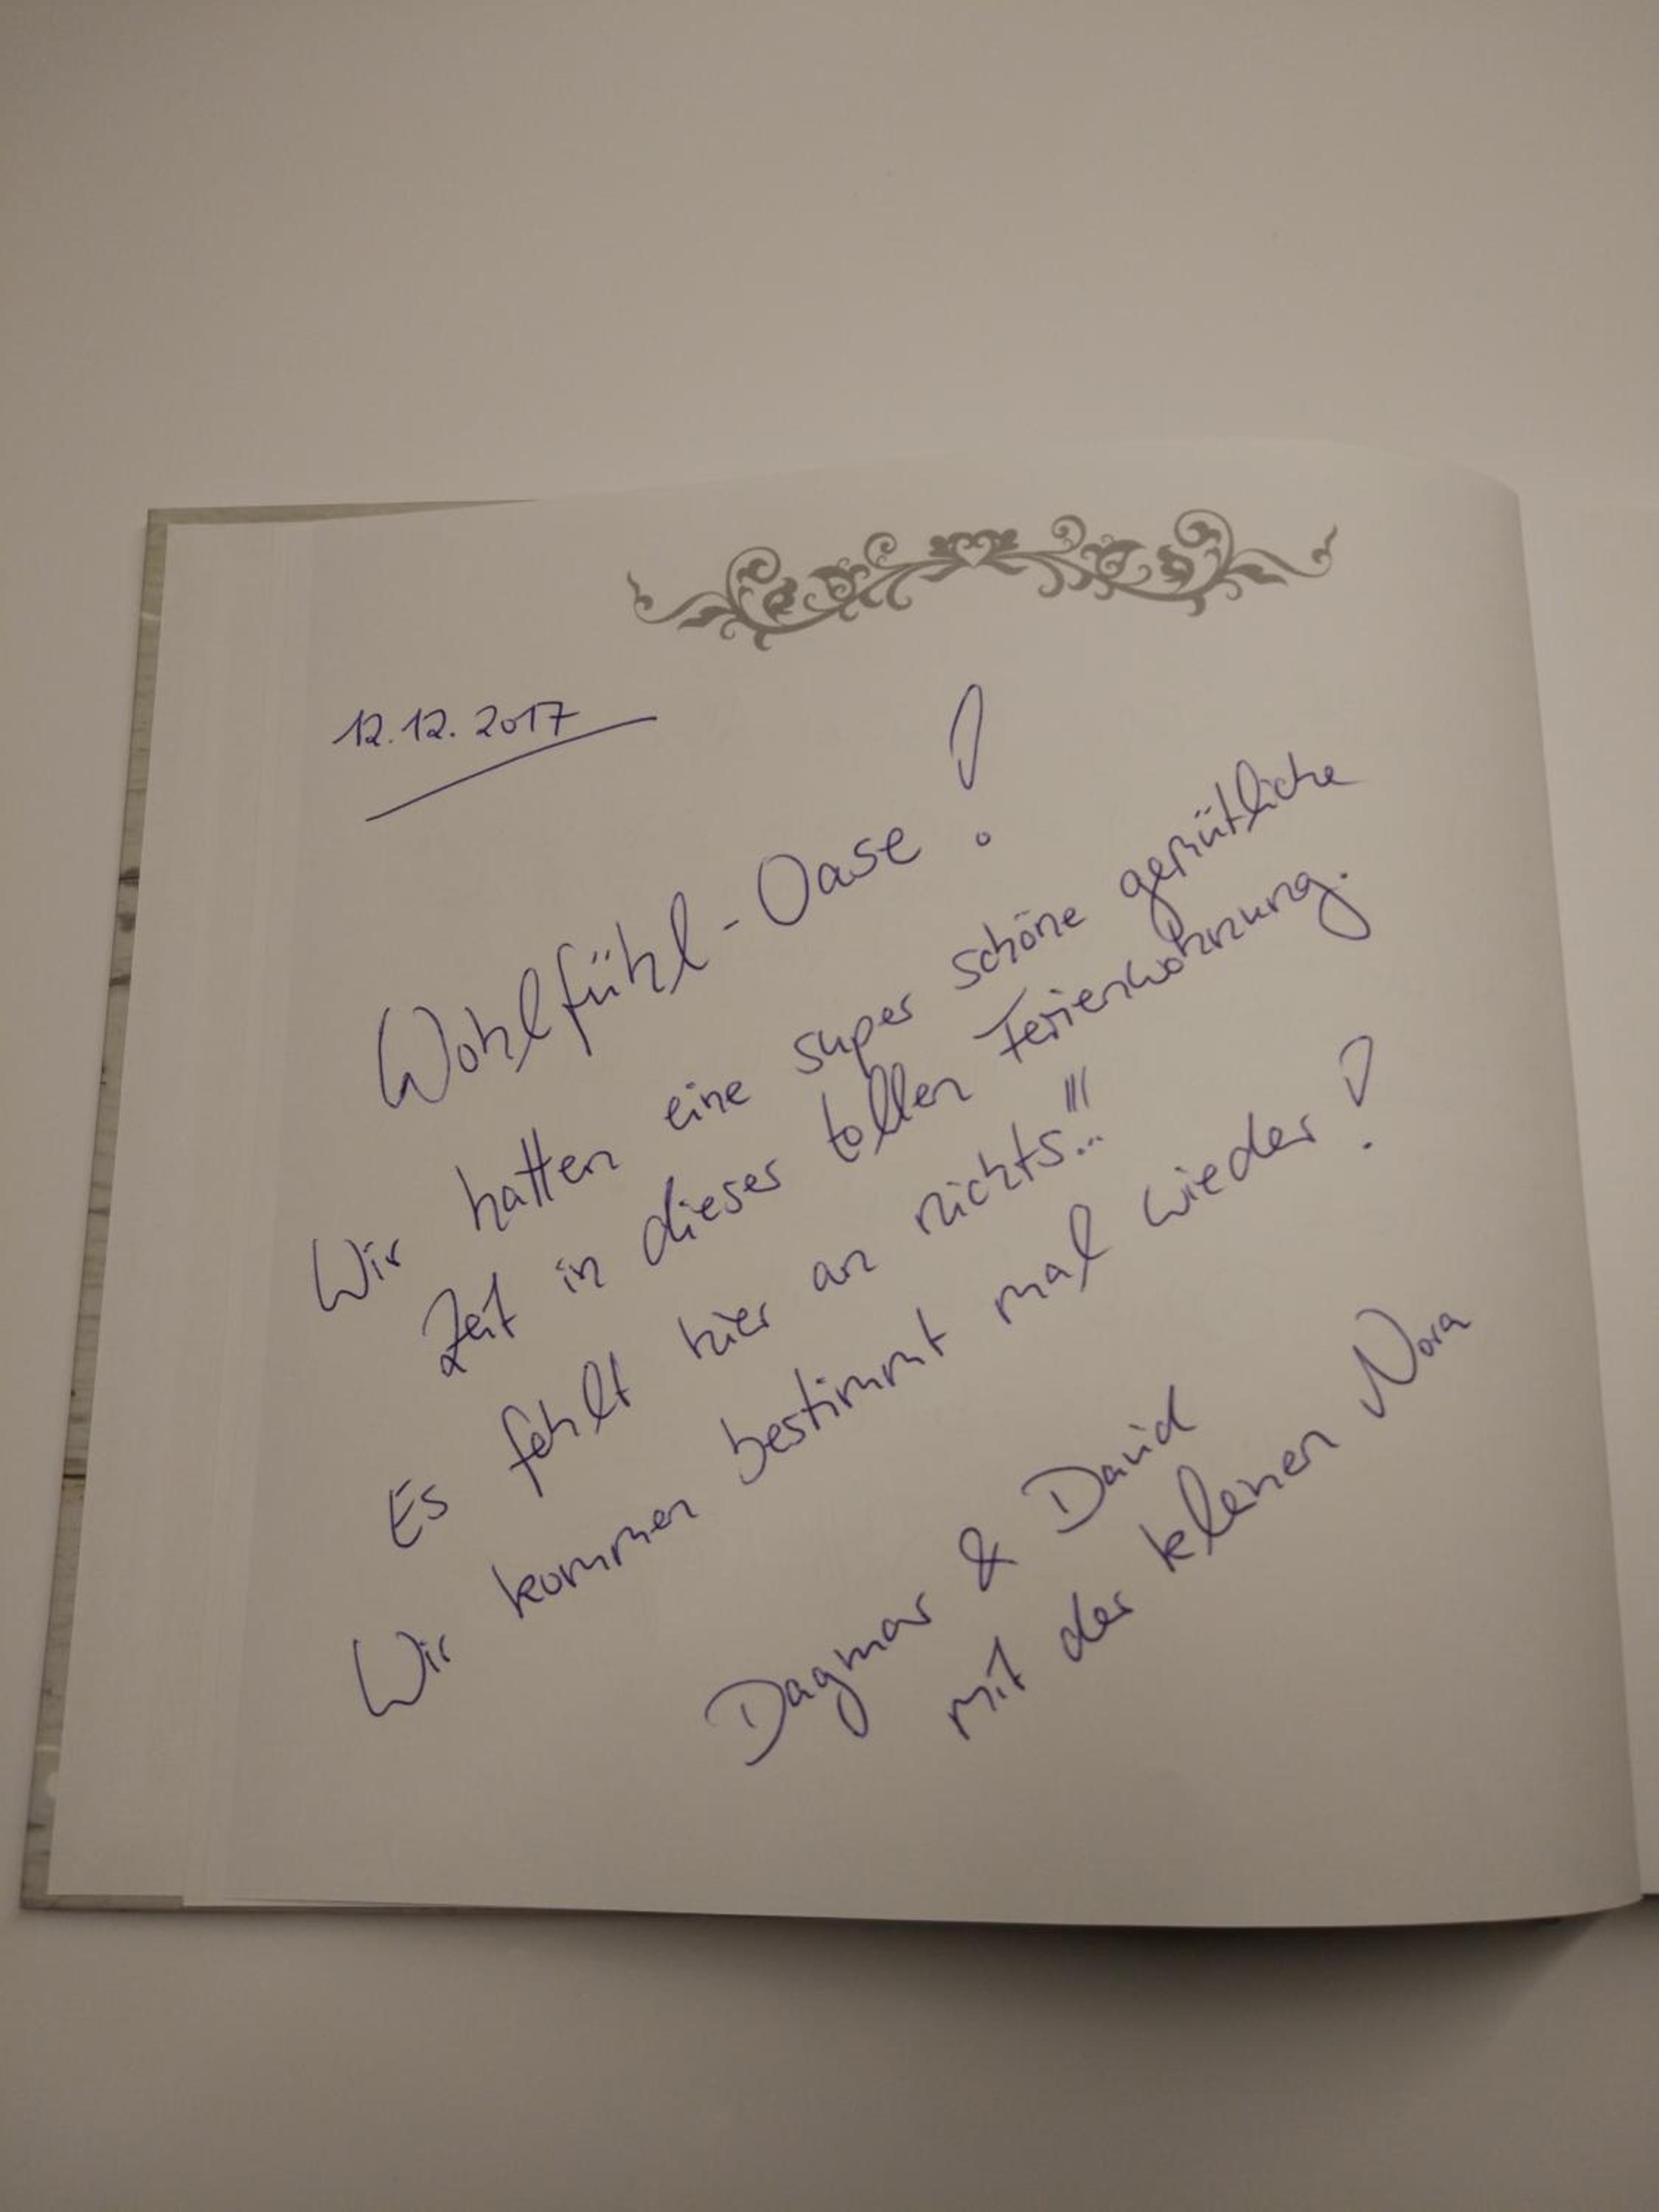 12.12.2017
Wohlfühl-Oase!
Wir hatten eine super schöne gemütliche
Zeit in dieser tollen Ferienwohnung.
Es fehlt hier an nichts!!!
Wir kommen bestimmt mal wieder!
Dagmar & David
mit der kleinen Nora